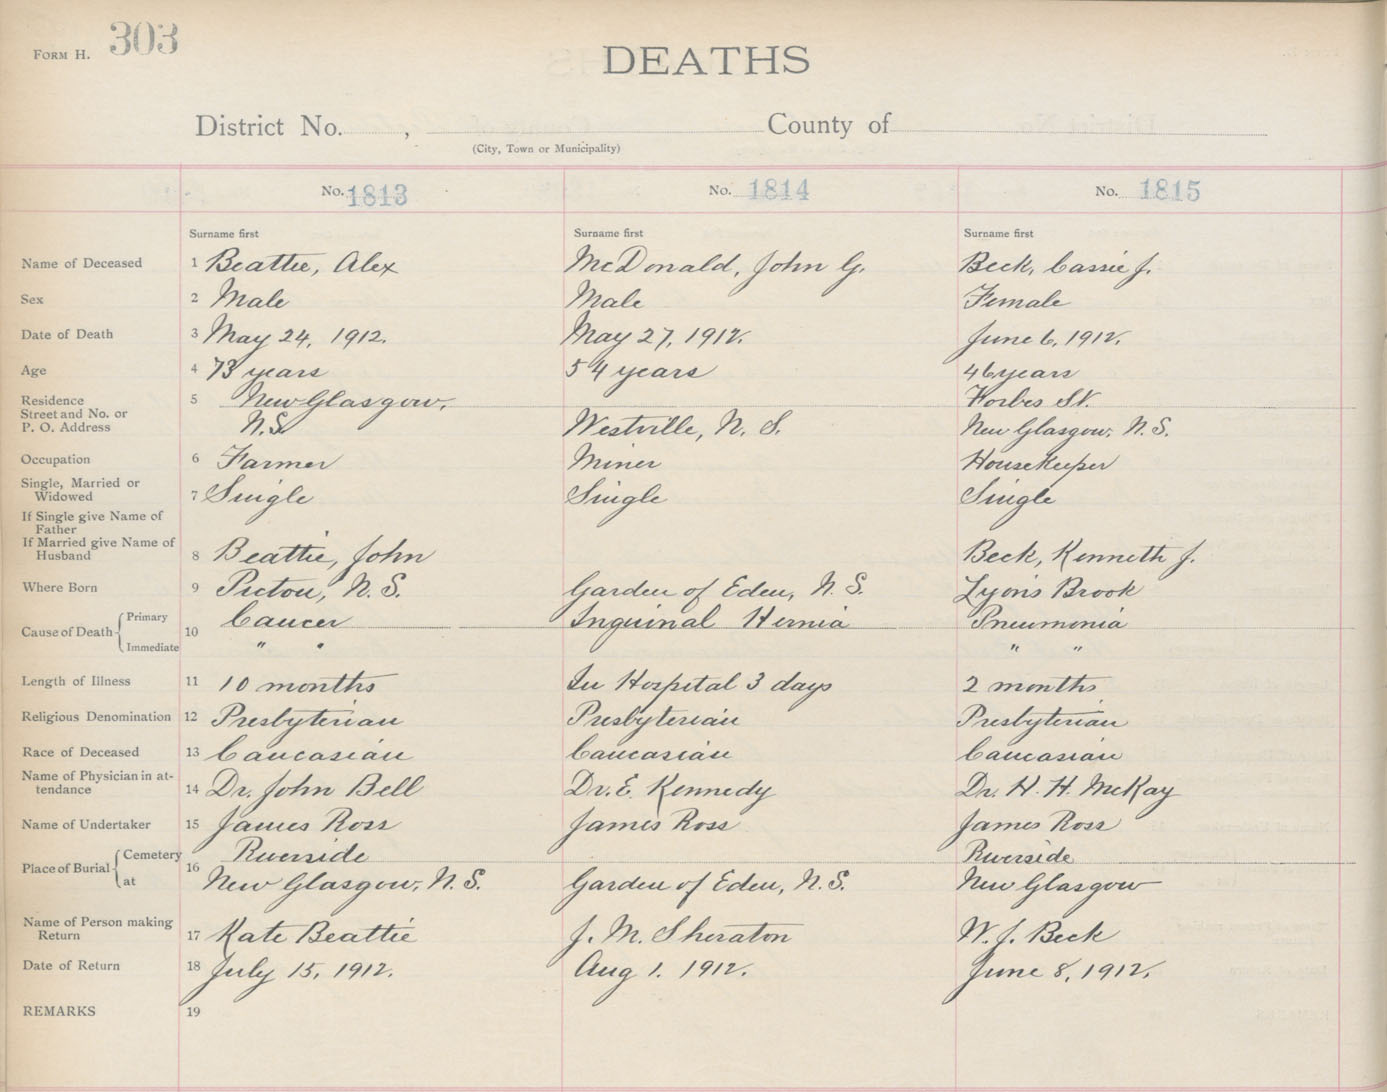 Form H. 303
DEATHS
District No. , County of
(City, Town or Municipality)
No. 1813 No. 1814 No. 1815
Surname first Surname first Surname first
Name of Deceased 1 Beattie, Alex McDonald, John G. Beck, Cassie J.
Sex 2 Male Male Female
Date of Death 3 May 24, 1912. May 27, 1912. June 6, 1912.
Age 4 73 years 54 years 46 years
Residence 5 New Glasgow, Forbes St.
Street and No. or
P. O. Address N.S. Westville, N. S. New Glasgow, N. S.
Occupation 6 Farmer Miner Housekeeper
Single, Married or
Widowed 7 Single Single Single
If Single give Name of
Father
If Married give Name of
Husband 8 Beattie, John Beck, Kenneth J.
Where Born 9 Pictou, N. S. Garden of Eden, N. S. Lyons Brook
Cause of Death Primary 10 Cancer Inguinal Hernia Pneumonia
Immediate " " " "
Length of Illness 11 10 months In Hospital 3 days 2 months
Religious Denomination 12 Presbyterian Presbyterian Presbyterian
Race of Deceased 13 Caucasian Caucasian Caucasian
Name of Physician in at-
tendance 14 Dr. John Bell Dr. E. Kennedy Dr. H. H. McKay
Name of Undertaker 15 James Ross James Ross James Ross
Place of Burial Cemetery 16 Riverside Riverside
at New Glasgow, N. S. Garden of Eden, N. S. New Glasgow
Name of Person making
Return 17 Kate Beattie J. M. Sheraton W. J. Beck
Date of Return 18 July 15, 1912. Aug 1. 1912. June 8, 1912.
REMARKS 19